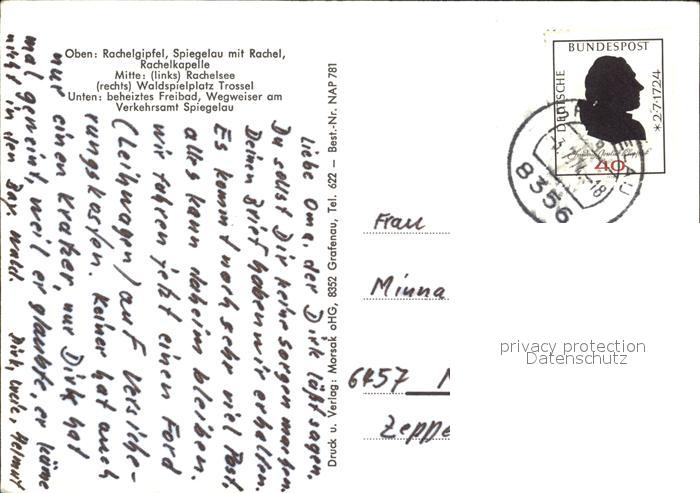 Oben: Rachelgipfel, Spiegelau mit Rachel,
Rachelkapelle
Mitte: (links) Rachelsee
(rechts) Waldspielplatz Trossel
Unten: beheiztes Freibad, Wegweiser am
Verkehrsamt Spiegelau
Liebe Oma, der Dirk läßt sagen,
Du sollst Dir keine Sorgen machen.
Deinen Brief haben wir erhalten.
Es kommt noch sehr viel Post,
alles kann daheim bleiben.
Wir fahren jetzt einen Ford
(Leihwagen) auf Versiche-
rungskosten. Keiner hat auch
nur einen Kratzer, nur Dirk hat
mal geweint, weil er glaubte, er käme
nicht in den Bay. Wald. Dirk, Helmut
Druck u. Verlag: Morsak oHG, 8352 Grafenau, Tel. 622 — Best.-Nr. NAP 781
DEUTSCHE
BUNDESPOST
*2·7·1724
40
8356
-18
Frau
Minna
6457
Zeppe
privacy protection
Datenschutz